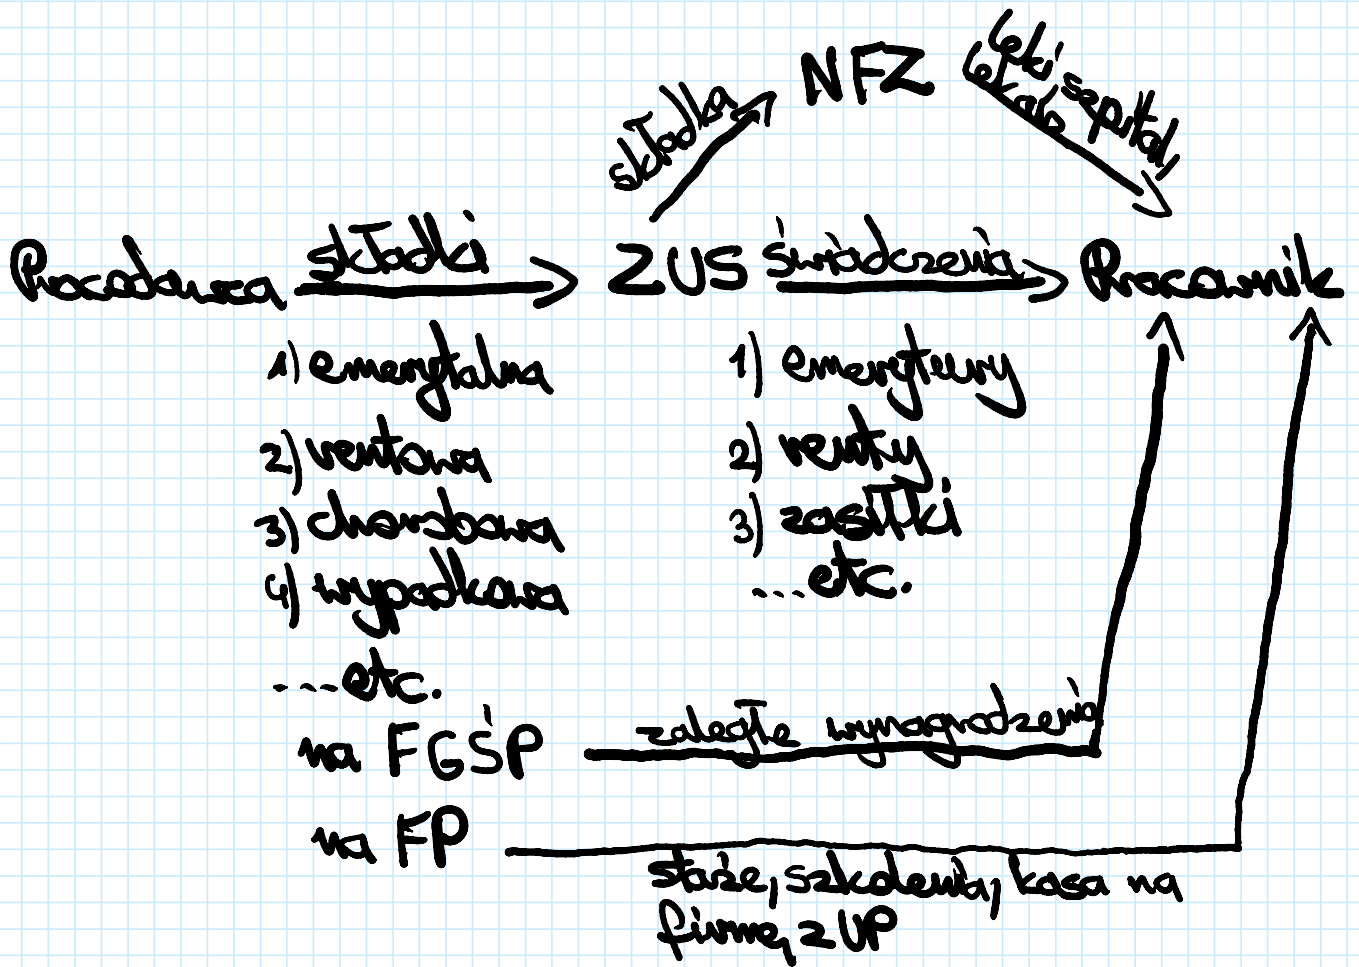 NFZ
składka
leki, szpital,
lekarz
Pracodawca składki ZUS świadczenia Pracownik
1) emerytalna
2) rentowa
3) chorobowa
4) wypadkowa
....etc.
na FGŚP
na FP
1) emerytury
2) renty
3) zasiłki
....etc.
zaległe wynagrodzenia
staże, szkolenia, kasa na
firmę z UP